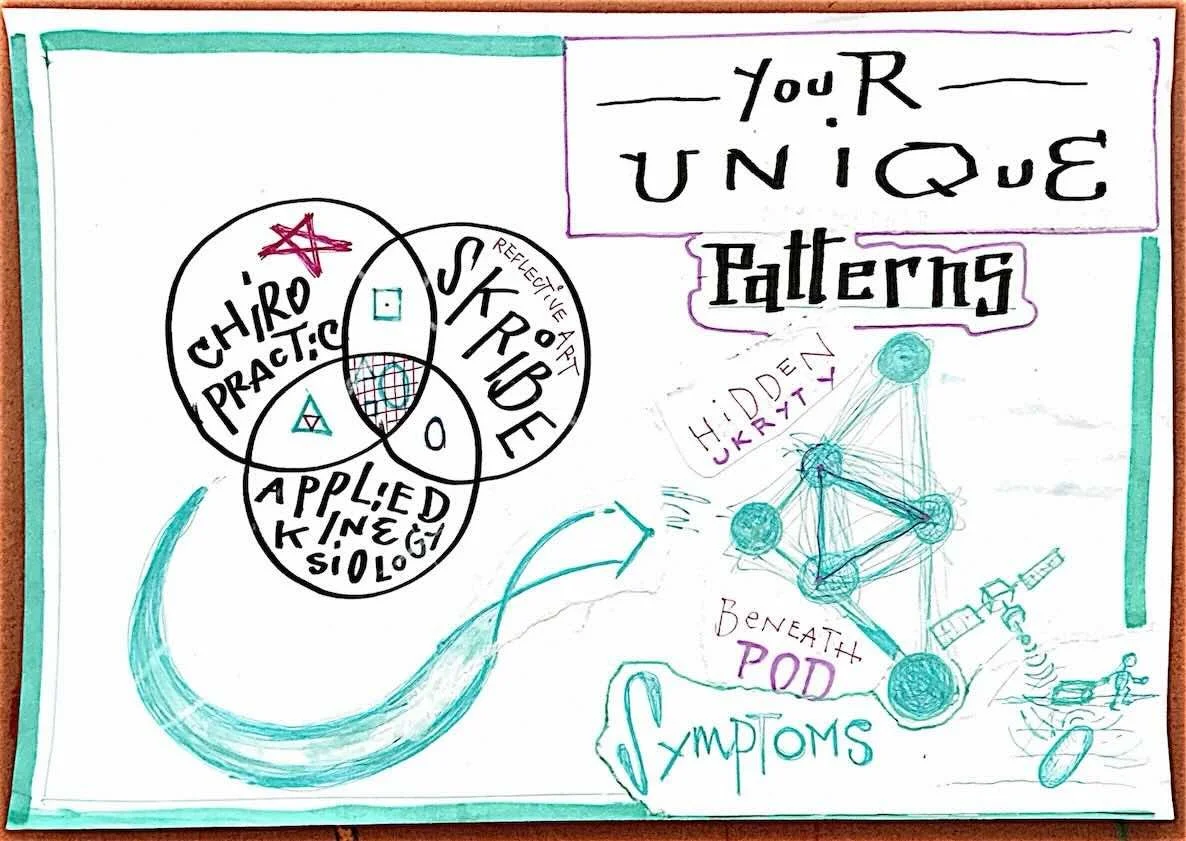 YouR
UNiQuE
Patterns
HiDDEN
UKRYTY
CHiRO
PRACTiC
SKRiBE
REFLECTiVE ART
APPLiED
KiNE
SiOLoGY
BeNEATH
POD
SYMPTOMS